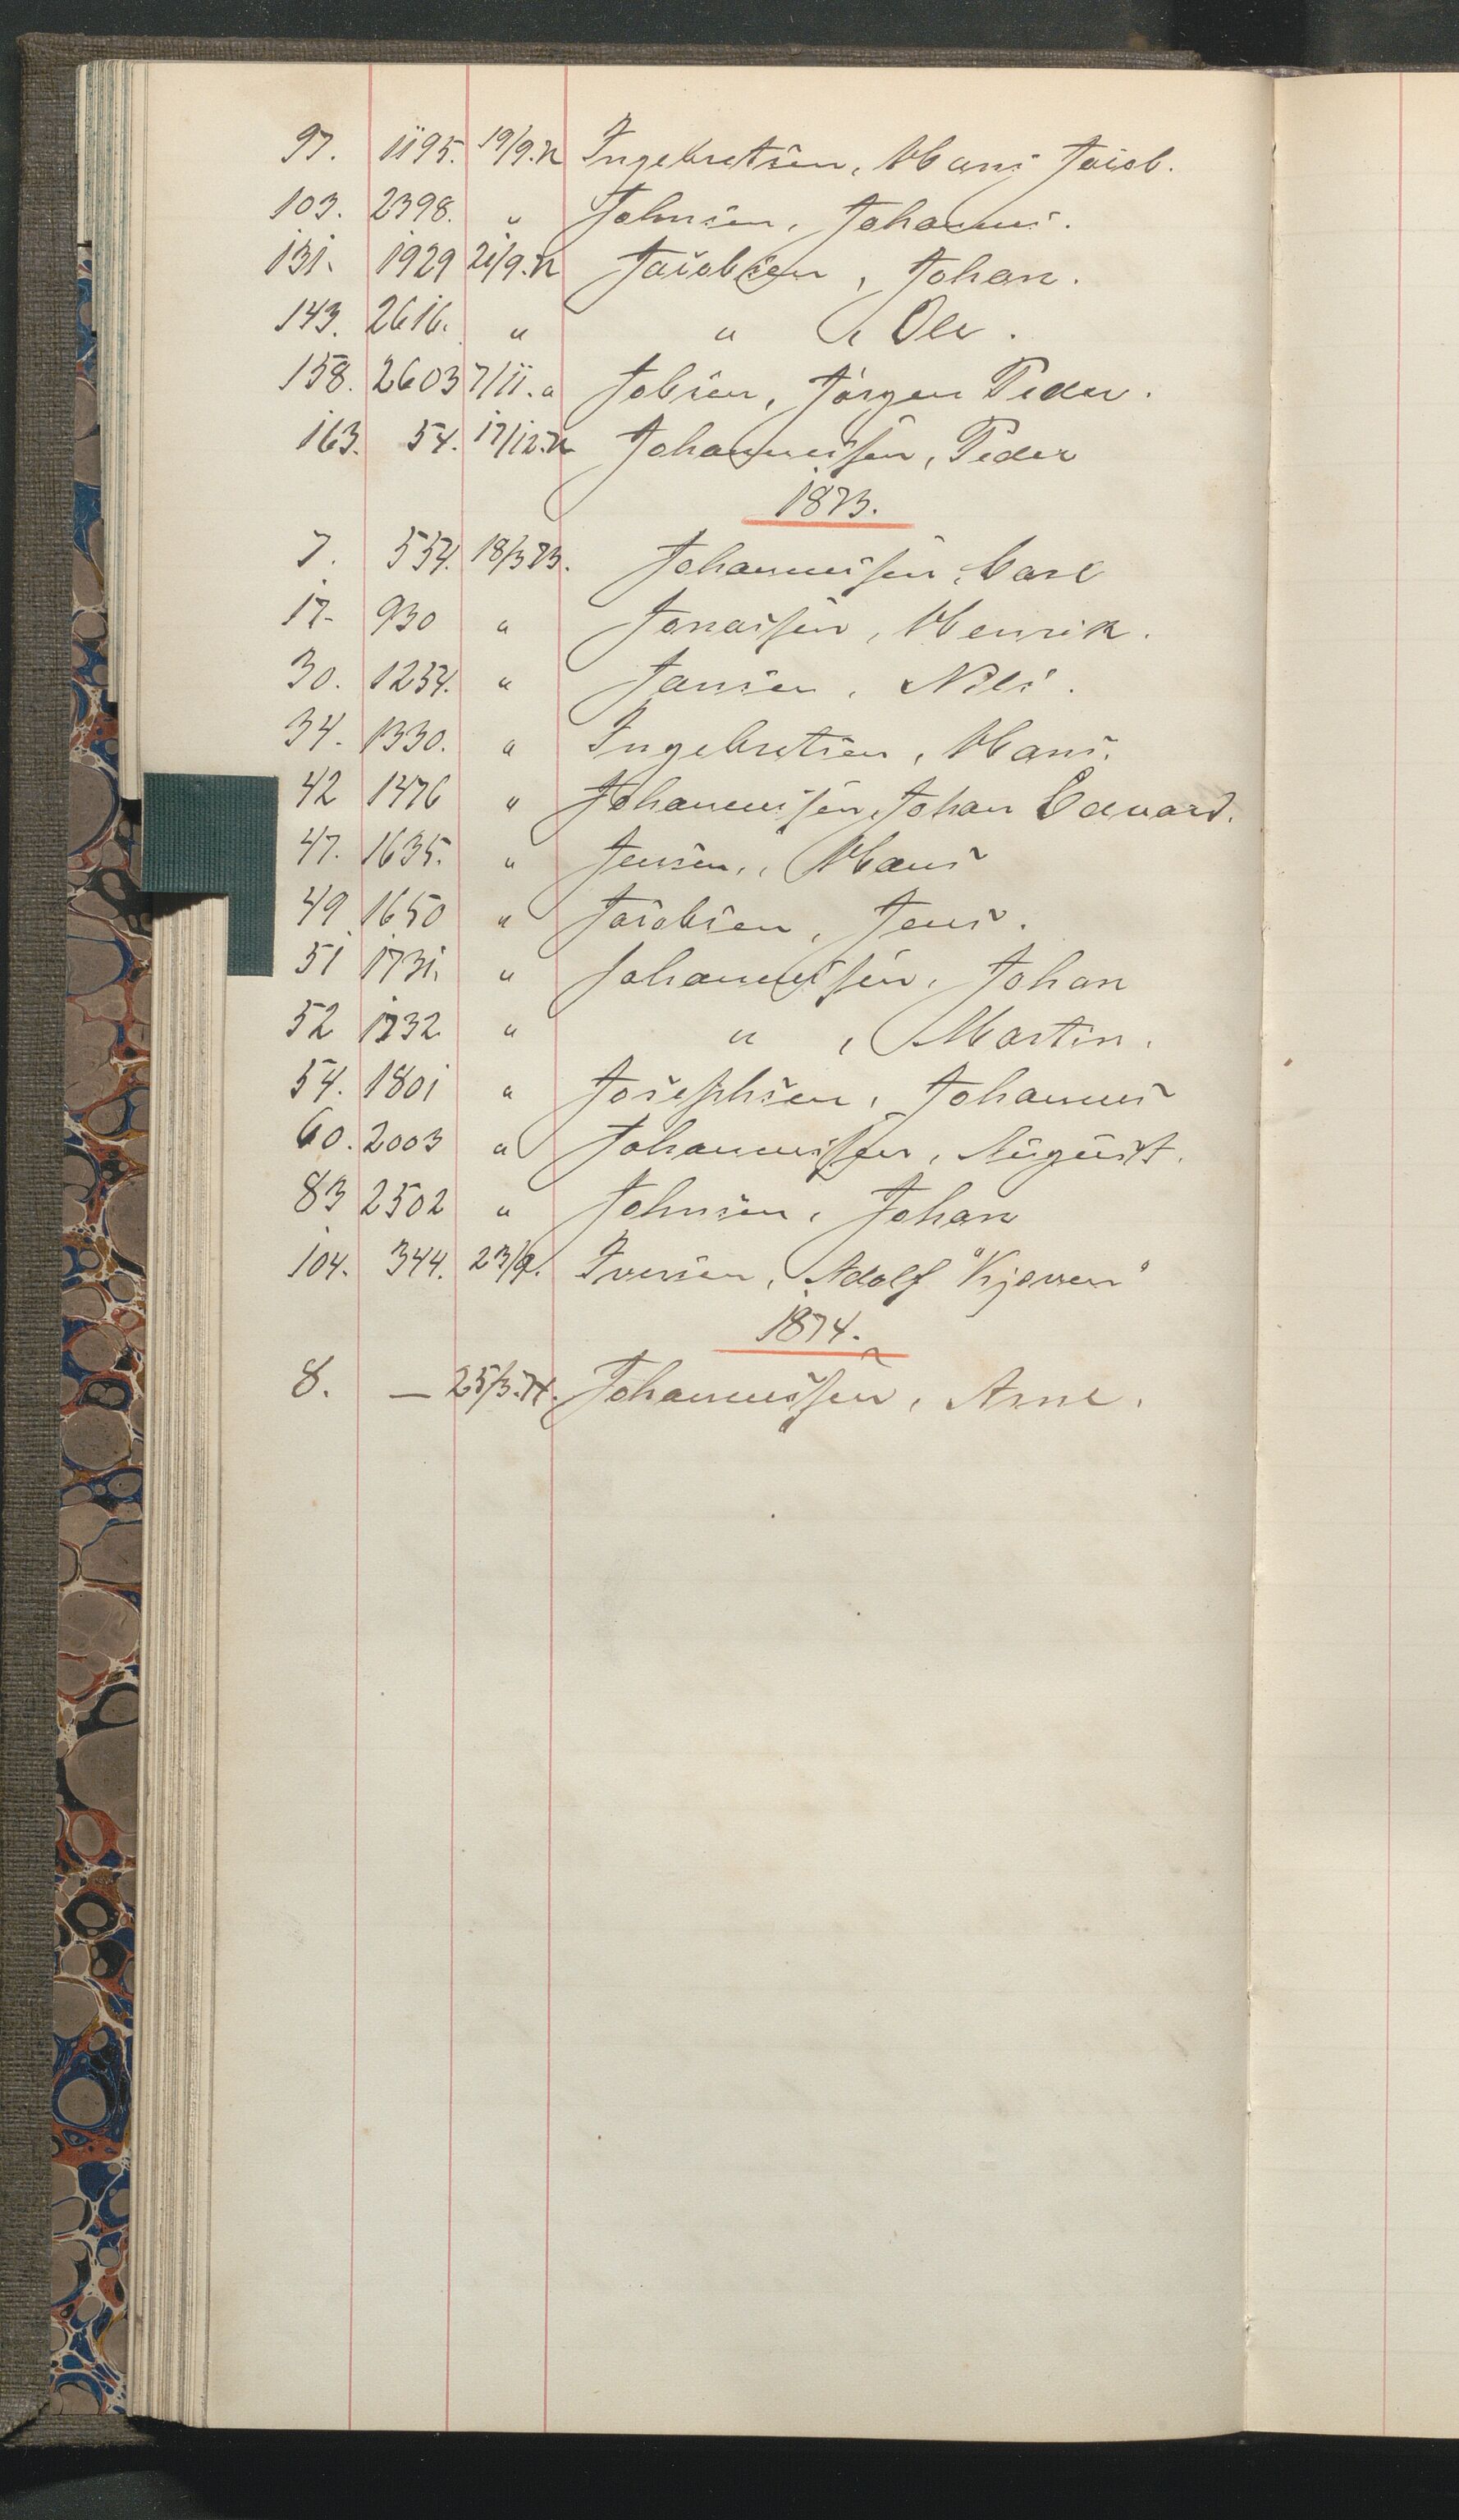 97. 1195. 19/9.72 Ingebretsen, Hans Jacob.
103. 2398. " Johnsen, Johannes.
131. 1929 21/9.72 Jacobsen, Johan.
143. 2616. " " , Ole.
158. 2603 7/11. " Jobsen, Jörgen Peder.
163. 54. 17/12.72 Johannessen, Peder
1873.
7. 554. 18/3 73. Johannessen, Carl
17. 930 " Jonassen, Henrik.
30. 1234. " Jansen, Nils.
34. 1330. " Ingebretsen, Hans.
42 1476 " Johannessen, Johan Edvard.
47. 1635. " Jensen, Hans
49 1650 " Jacobsen, Jens.
51 1731. " Johannessen, Johan
52 1732 " " , Martin.
54. 1801 " Josephsen, Johannes
60. 2003 " Johannessen, August.
83 2502 " Johnsen, Johan
104. 344. 23/9. Iversen, Adolf "Kjerven"
1874.
8. — 25/3.74. Johannessen, Arne.